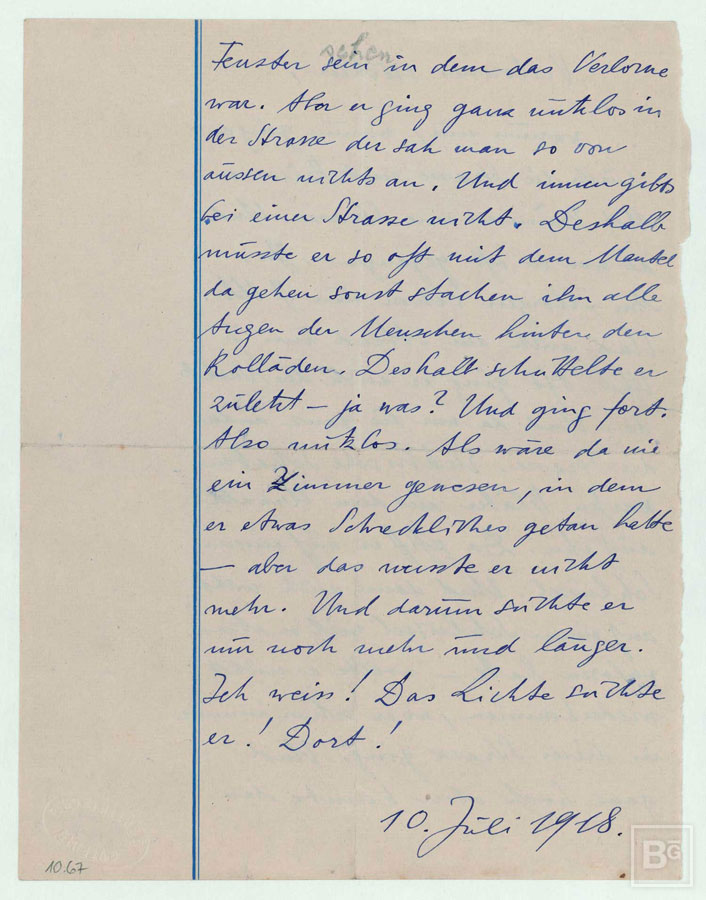 sehen
Fenster sein in dem das Verlorne
war. Aber er ging ganz nutzlos in
der Strasse der sah man so von
aussen nichts an. Und innen gibts
bei einer Strasse nicht. Deshalb
musste er so oft mit dem Mantel
da gehen sonst stachen ihn alle
Augen der Menschen hinter den
Rolläden. Deshalb schüttelte er
zuletzt – ja was? Und ging fort.
Also nutzlos. Als wäre da nie
ein Zimmer gewesen, in dem
er etwas Schreckliches getan hatte
– aber das wusste er nicht
mehr. Und darum suchte er
nur noch mehr und länger.
Ich weiss! Das Lichte suchte
er! Dort!
10. Juli 1918.
10.67
BG